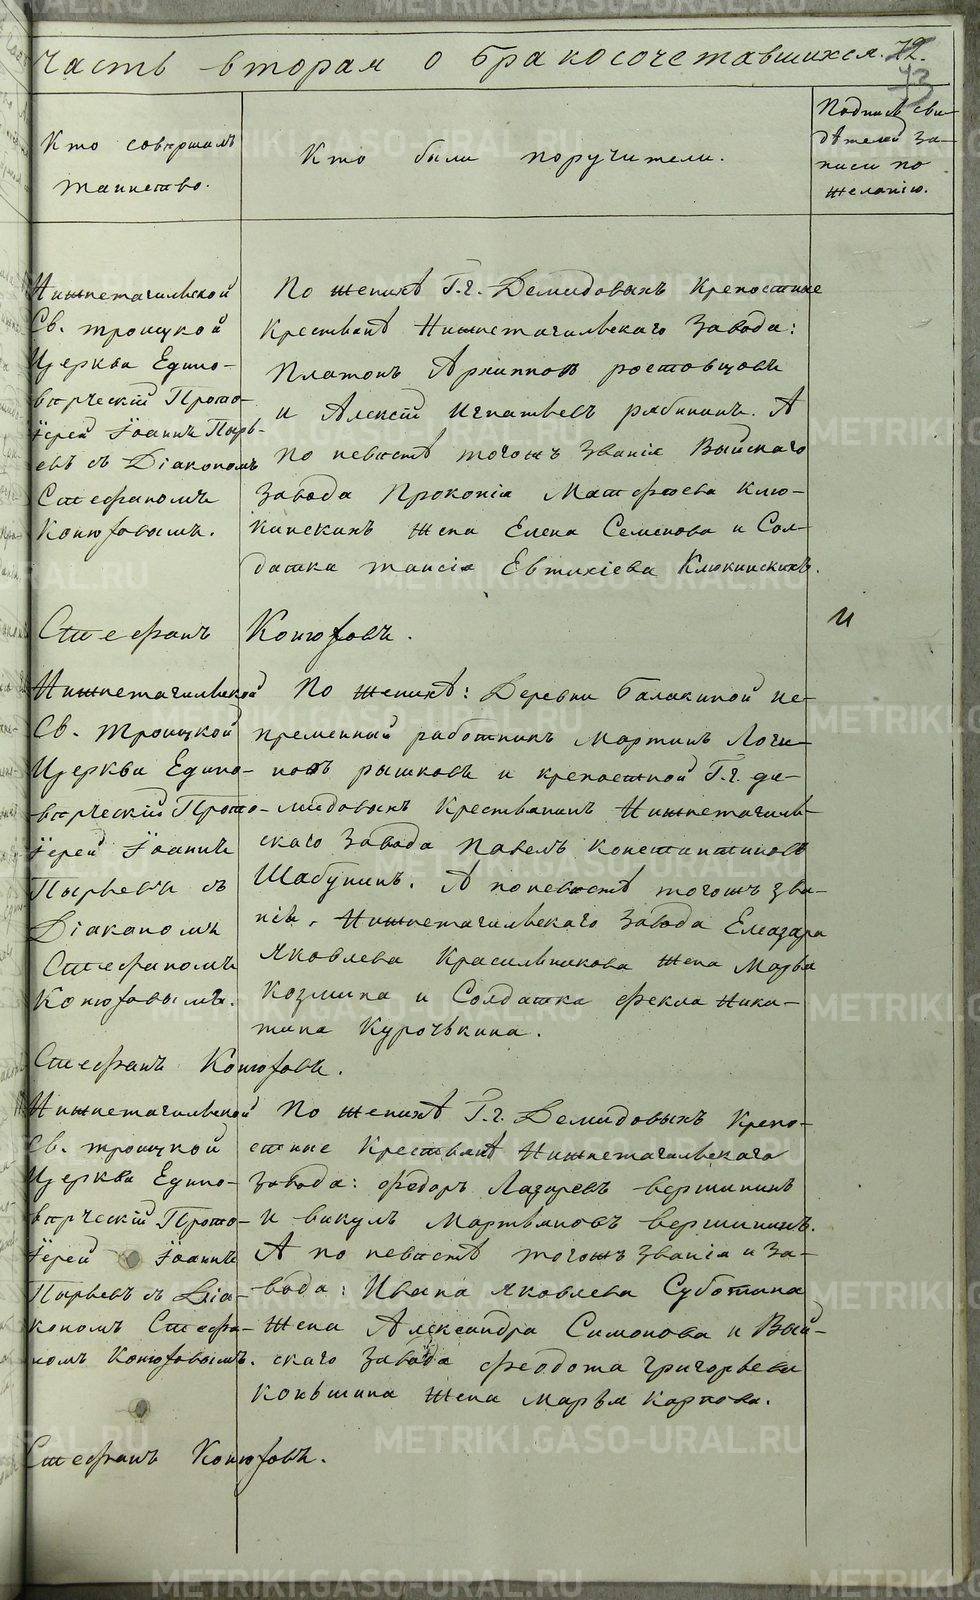 Часть вторая о бракосочетавшихся. 72.
73
Кто совершалъ
таинство.
Кто были поручители.
Подписи сви-
дѣтелей за-
писи по
желанію.
Нижнетагильской
Св. Троицкой
Церкви Едино-
верческій Прото-
Іерей Іоаннъ Пырь-
евъ съ Діакономъ
Стефаномъ
Конюховымъ.
По женихѣ Г.г. Демидовыхъ Крепостные
Крестьянѣ Нижнетагильскаго завода:
Платонъ Архиповъ ростовщовъ
и Алексѣй Игнатьевъ рябининъ. А
по невѣстѣ тогожъ званія Выйскаго
завода Прокопія Матфѣева Клю-
кинскихъ жена Елена Семенова и Сол-
датка таисія Евтихіева Клюкинскихъ.
Стефанъ Конюховъ.
и
Нижнетагильской
Св. Троицкой
Церкви Едино-
верческій Прото-
Іерей Іоаннъ
Пырьевъ съ
Діакономъ
Стефаномъ
Конюховымъ.
По женихѣ: Деревни Балакиной не-
пременный работникъ Мартинъ Логи-
новъ рашковъ и крепостной Г.г. де-
мидовыхъ Крестьянинъ Нижнетагиль-
скаго завода Павелъ Константиновъ
Шабунинъ. А по невѣстѣ тогожъ зва-
нія, Нижнетагильскаго завода Елеазара
Яковлева Красильникова жена Марѳа
Козмина и Солдатка Фекла Ники-
тина Курочькина.
Стефанъ Конюховъ.
Нижнетагильской
Св. троицкой
Церкви Едино-
верческій Прото-
Іерей Іоаннъ
Пырьевъ съ Діа-
кономъ Стефа-
номъ Конюховымъ.
По женихѣ Г.г. Демидовыхъ Крепо-
стные Крестьянѣ Нижнетагильскаго
завода: Федоръ Лазаревъ вершининъ
и викулъ Мартьяновъ вершининъ.
А по невѣстѣ тогожъ званія и за-
вода: Ивана Яковлева Суботина
жена Александра Симонова и Вый-
скаго завода Феодота григорьева
Коньшина жена Марья Карпова.
Стефанъ Конюховъ.
METRIKI.GASO-URAL.RU